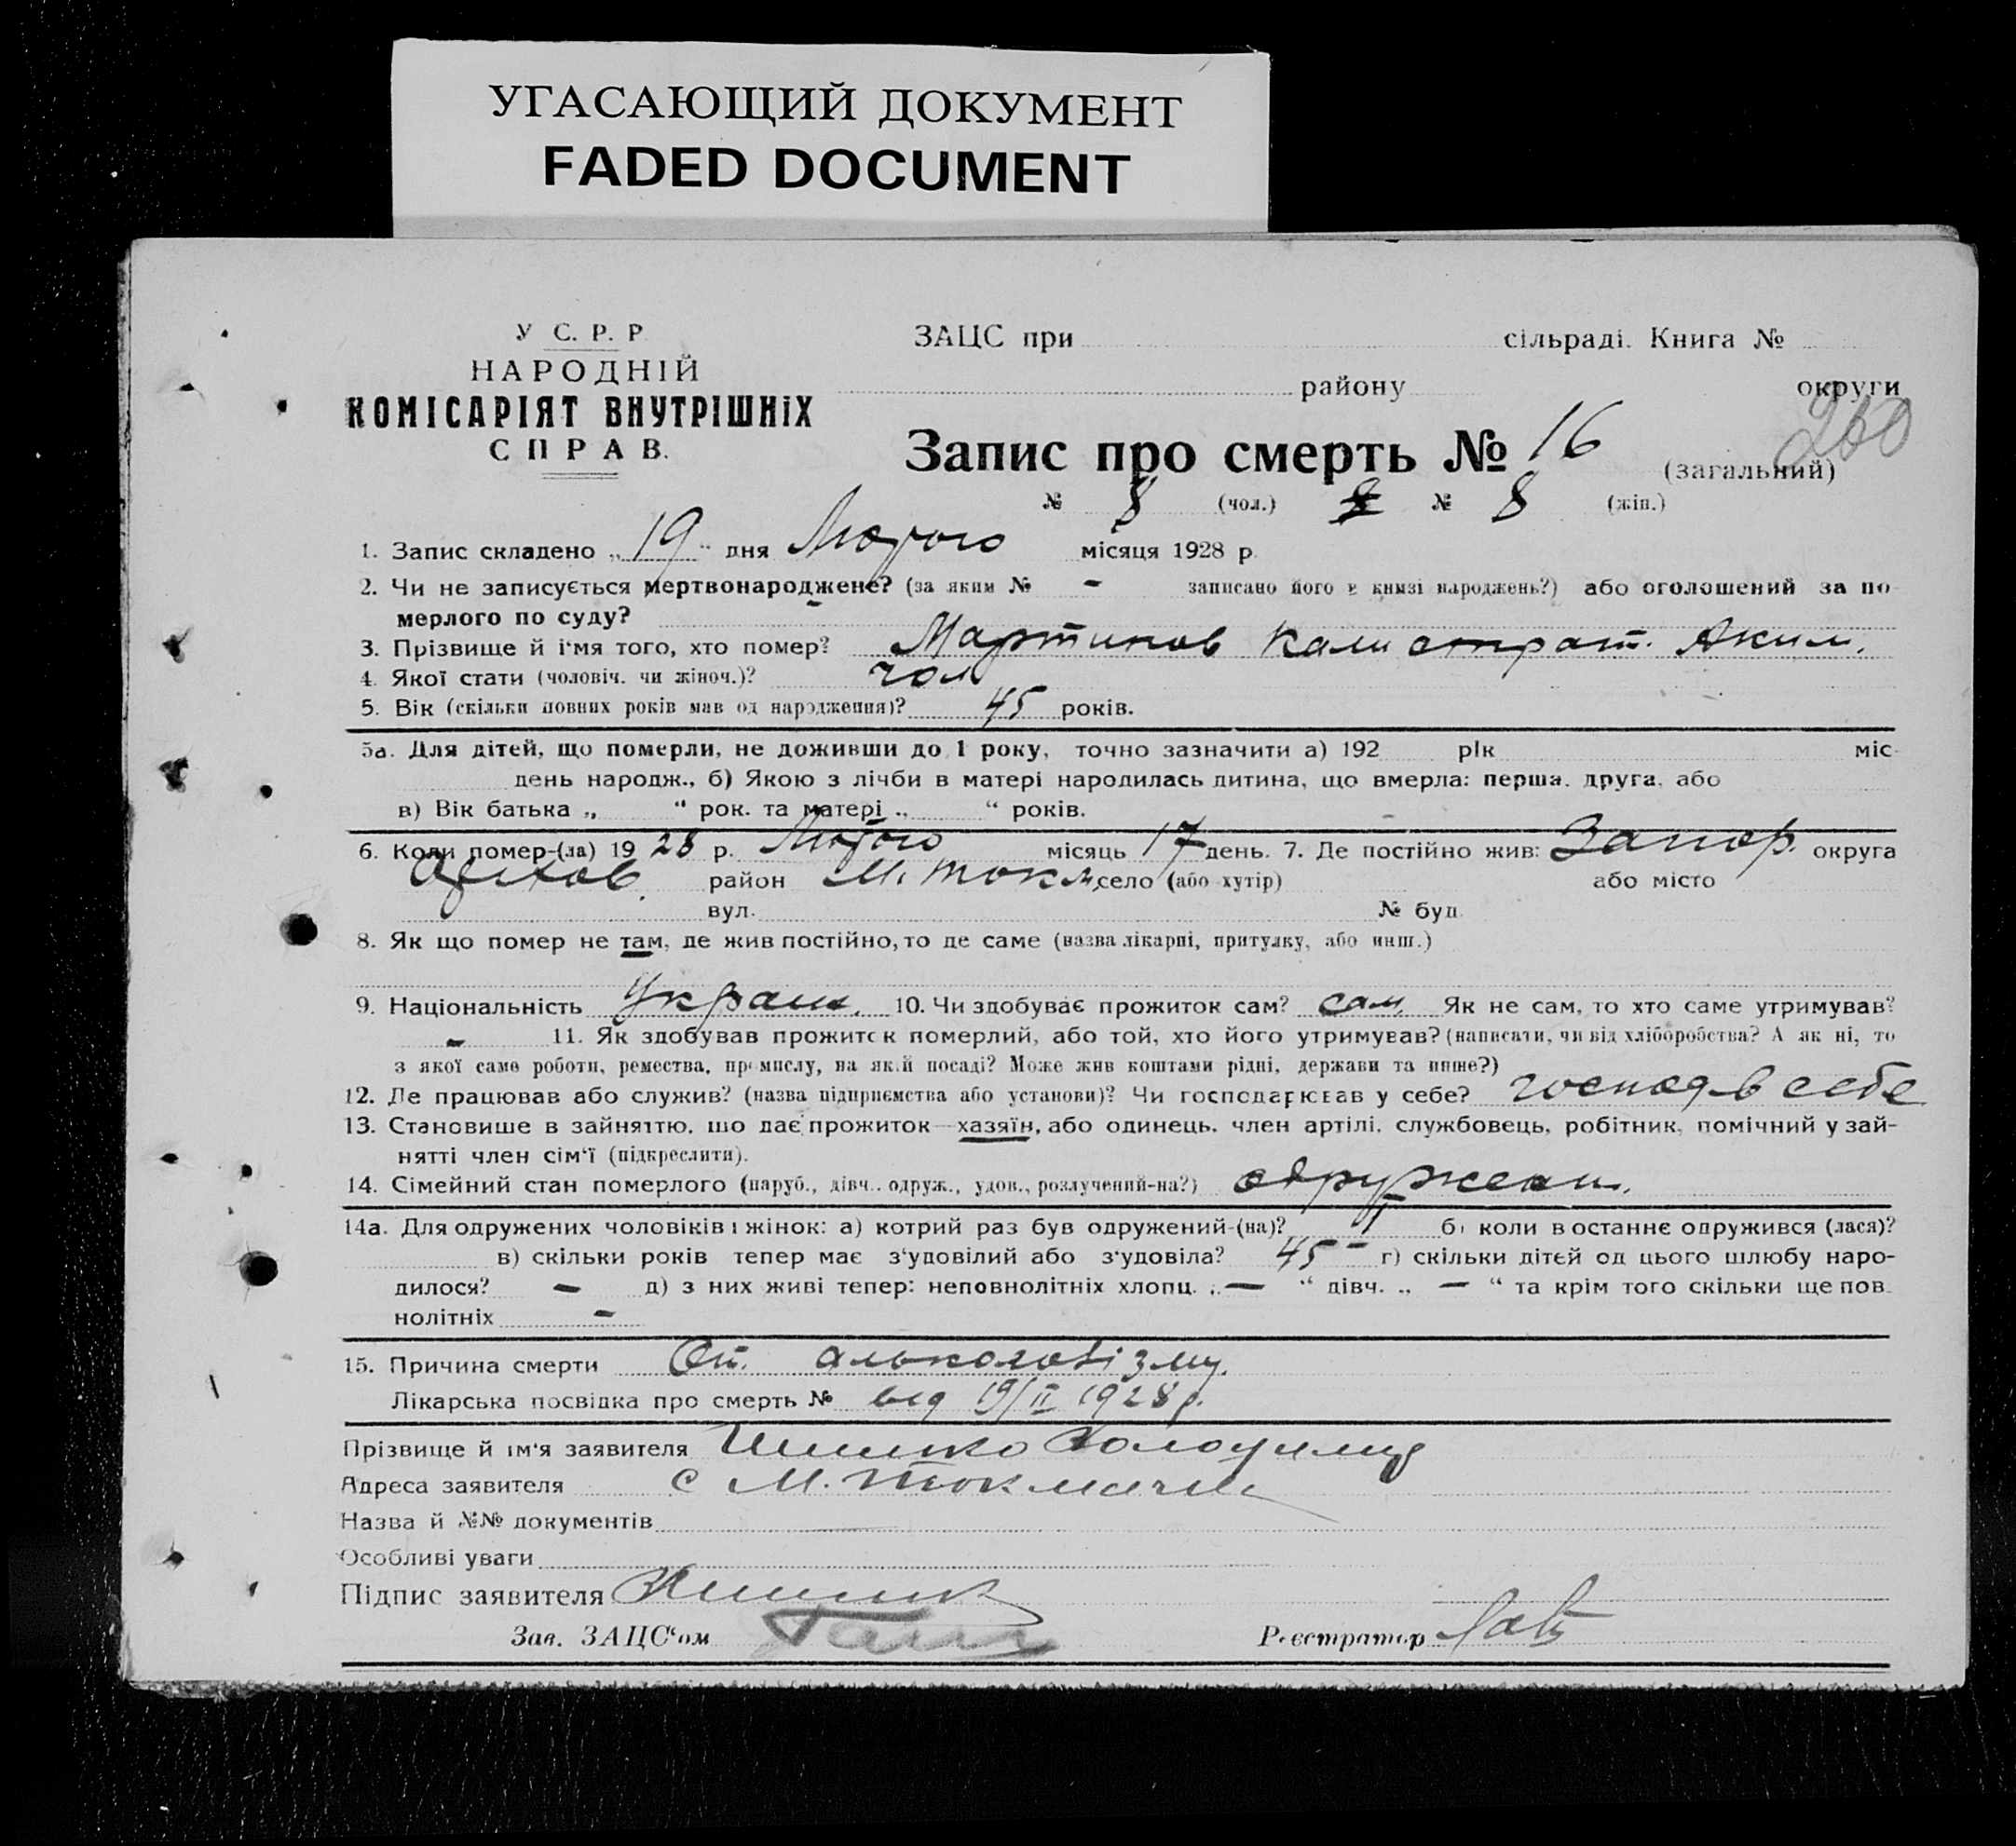 УГАСАЮЩИЙ ДОКУМЕНТ
FADED DOCUMENT
У С. Р. Р
НАРОДНІЙ
КОМІСАРІЯТ ВНУТРІШНІХ
СПРАВ.
ЗАЦС при сільраді. Книга №
району округи
260
Запис про смерть № 16 (загальний)
№ 8 (чол.) № 8 (жін.)
1. Запис складено „ 19 “ дня Лютого місяця 1928 р.
2. Чи не записується мертвонароджене? (за яким № - записано його в книзі народжень?) або оголошений за по
мерлого по суду? -
3. Прізвище й і'мя того, хто помер? Мартинов Калистрат. Аким.
4. Якої стати (чоловіч. чи жіноч.)? чол
5. Вік (скільки повних років мав од народження)? 45 років.
5а. Для дітей, що померли, не доживши до 1 року, точно зазначити а) 192 рік міс
день народж., б) Якою з лічби в матері народилась дитина, що вмерла: перша, друга, або
в) Вік батька „ “ рок. та матері „ “ років.
6. Коли помер-(ла) 19 28 р. Лютого місяць 17 день. 7. Де постійно жив: Запор. округа
Оріхов район М. Токм. село (або хутір) або місто
вул. № буд.
8. Як що помер не там, де жив постійно, то де саме (назва лікарні, притулку, або инш.)
9. Національність Украин. 10. Чи здобуває прожиток сам? сам. Як не сам, то хто саме утримував?
- 11. Як здобував прожиток померлий, або той, хто його утримував? (написати, чи від хліборобства? А як ні, то
з якої саме роботи, ремества, промислу, на якій посаді? Може жив коштами рідні, держави та инше?)
12. Де працював або служив? (назва підприємства або установи)? Чи господарював у себе? господ в себе
13. Становище в зайняттю, що дає прожиток—хазяїн, або одинець, член артілі, службовець, робітник, помічний у зай-
нятті член сім'ї (підкреслити).
14. Сімейний стан померлого (паруб., дівч., одруж., удов., розлучений-на?) одружени.
14а. Для одружених чоловіків і жінок: а) котрий раз був одружений-(на)? I б) коли востаннє одружився (лася)?
в) скільки років тепер має з'удовілий або з'удовіла? 45 - г) скільки дітей од цього шлюбу наро-
дилося? - д) з них живі тепер: неповнолітніх хлопц. „ — “ дівч. „ — “ та крім того скільки ще пов
нолітніх -
15. Причина смерти От. алькоголізму.
Лікарська посвідка про смерть № від 19/II 1928 р.
Прізвище й ім'я заявителя Володимир
Адреса заявителя с М. Токмачка
Назва й №№ документів
Особливі уваги
Підпис заявителя
Зав. ЗАЦС'ом
Реєстратор